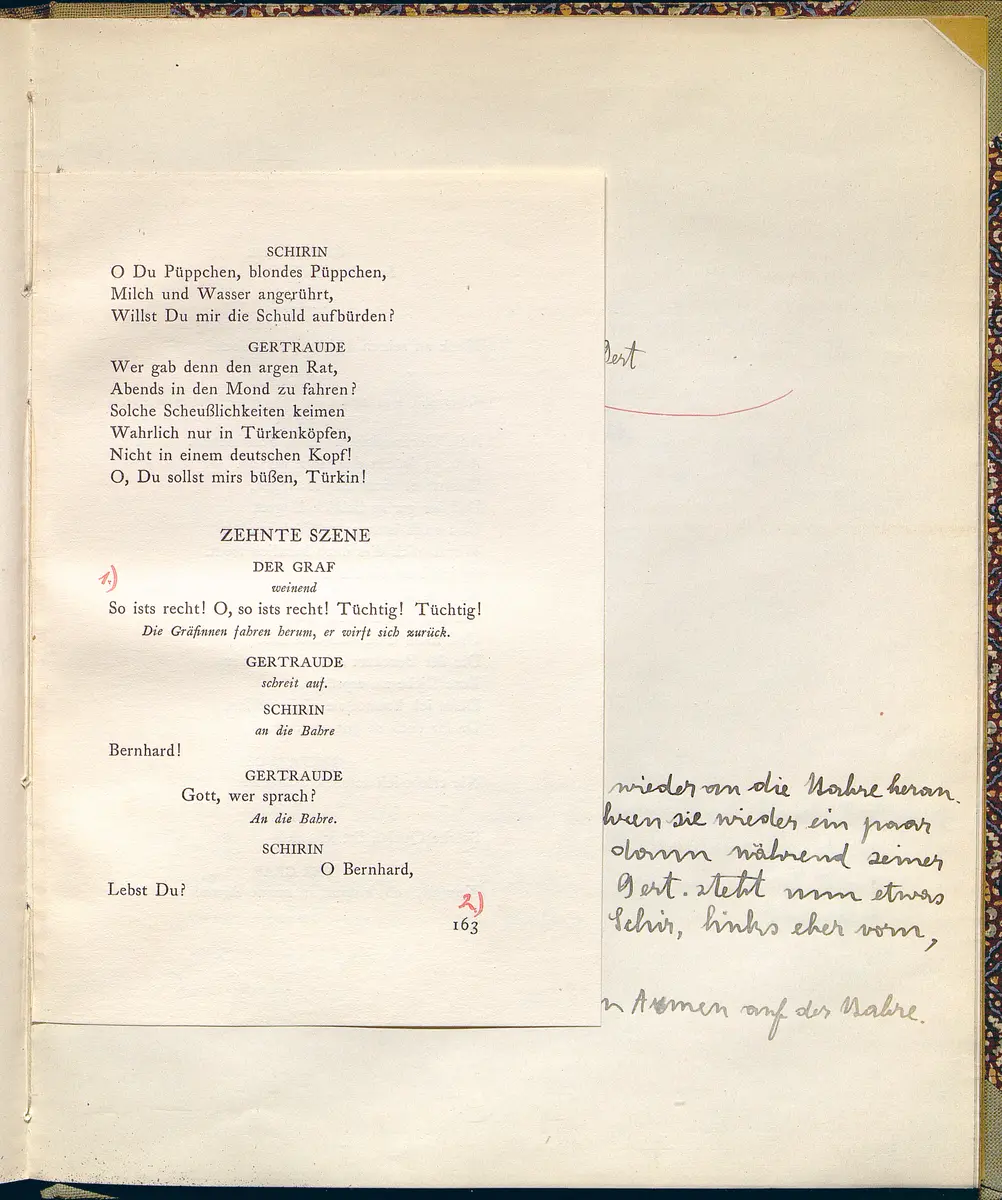 SCHIRIN
O Du Püppchen, blondes Püppchen,
Milch und Wasser angerührt,
Willst Du mir die Schuld aufbürden?
GERTRAUDE
Wer gab denn den argen Rat,
Abends in den Mond zu fahren?
Solche Scheußlichkeiten keimen
Wahrlich nur in Türkenköpfen,
Nicht in einem deutschen Kopf!
O, Du sollst mirs büßen, Türkin!
ZEHNTE SZENE
DER GRAF
1.)
weinend
So ists recht! O, so ists recht! Tüchtig! Tüchtig!
Die Gräfinnen fahren herum, er wirft sich zurück.
GERTRAUDE
schreit auf.
SCHIRIN
an die Bahre
Bernhard!
GERTRAUDE
Gott, wer sprach?
An die Bahre.
SCHIRIN
O Bernhard,
Lebst Du?
2.)
163
Gert
wieder an die Bahre heran.
hren sie wieder ein paar
dann während seiner
Gert. steht nun etwas
Schir, links eher vorn,
n Armen auf der Bahre.